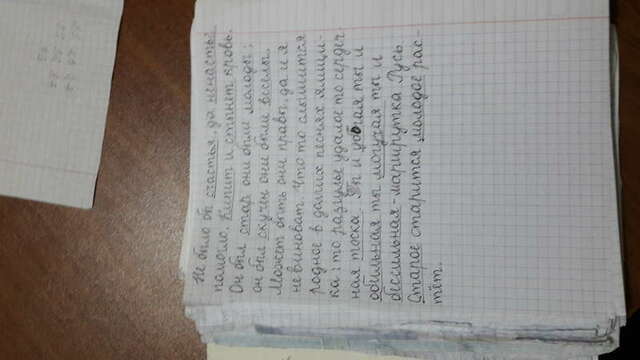 Не было бы счастья, да
помогло. Кипит и стынет кровь.
Он был стар они были молоды;
он был они были веселы.
Может быть они правы, да и я
не виноват. Что то слышится
родное в долгих песнях ямщи-
ка: то разгулье удалое то сердеч
ная тоска. Ты и убогая ты и
обильная ты могучая ты и
бессильная - маршрутка Русь
Старое старится молодое рас-
тёт.